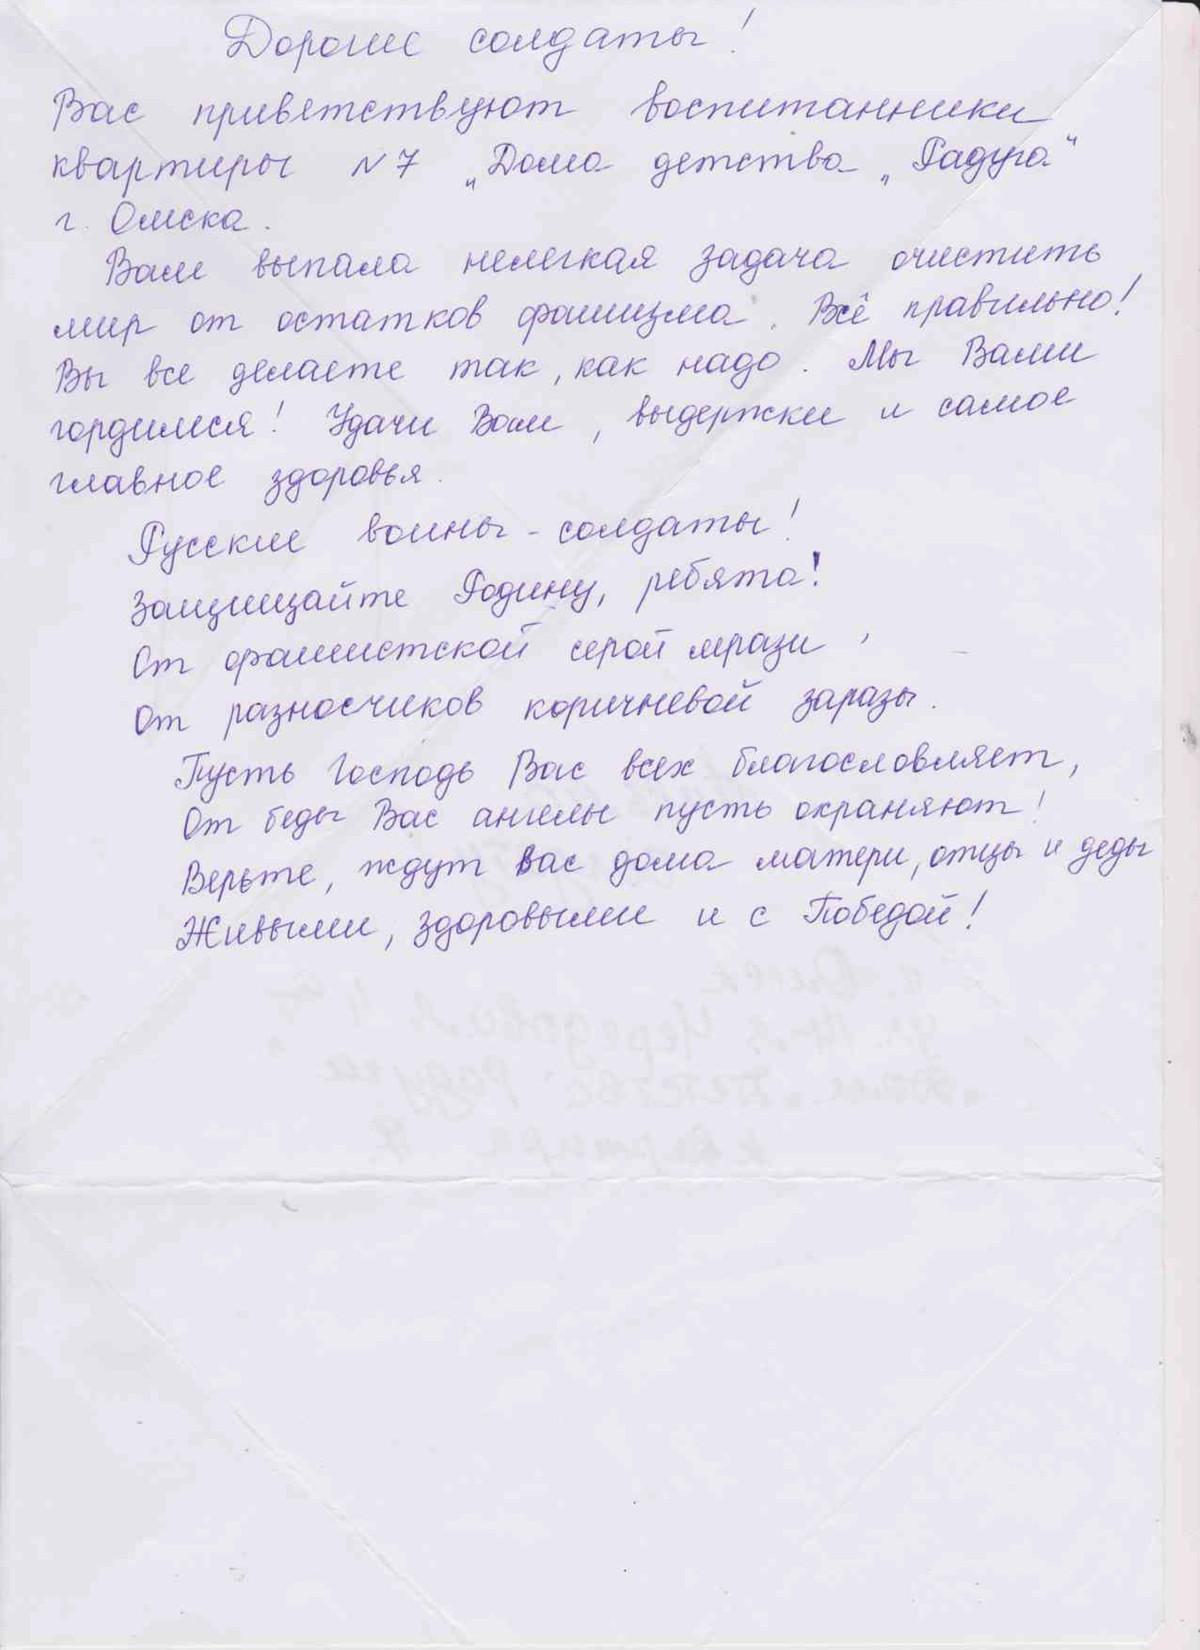 Дорогие солдаты!
Вас приветствуют воспитанники
квартиры N 7 „Дома детства „Радуга"
г. Омска.
Вам выпала нелегкая задача очистить
мир от остатков фашизма. Всё правильно!
Вы все делаете так, как надо. Мы Вами
гордимся! Удачи Вам, выдержки и самое
главное здоровья.
Русские воины - солдаты!
Защищайте Родину, ребята!
От фашистской серой мрази,
От разносчиков коричневой заразы.
Пусть Господь Вас всех благословляет,
От беды Вас ангелы пусть охраняют!
Верьте, ждут вас дома матери, отцы и деды
Живыми, здоровыми и с Победой!